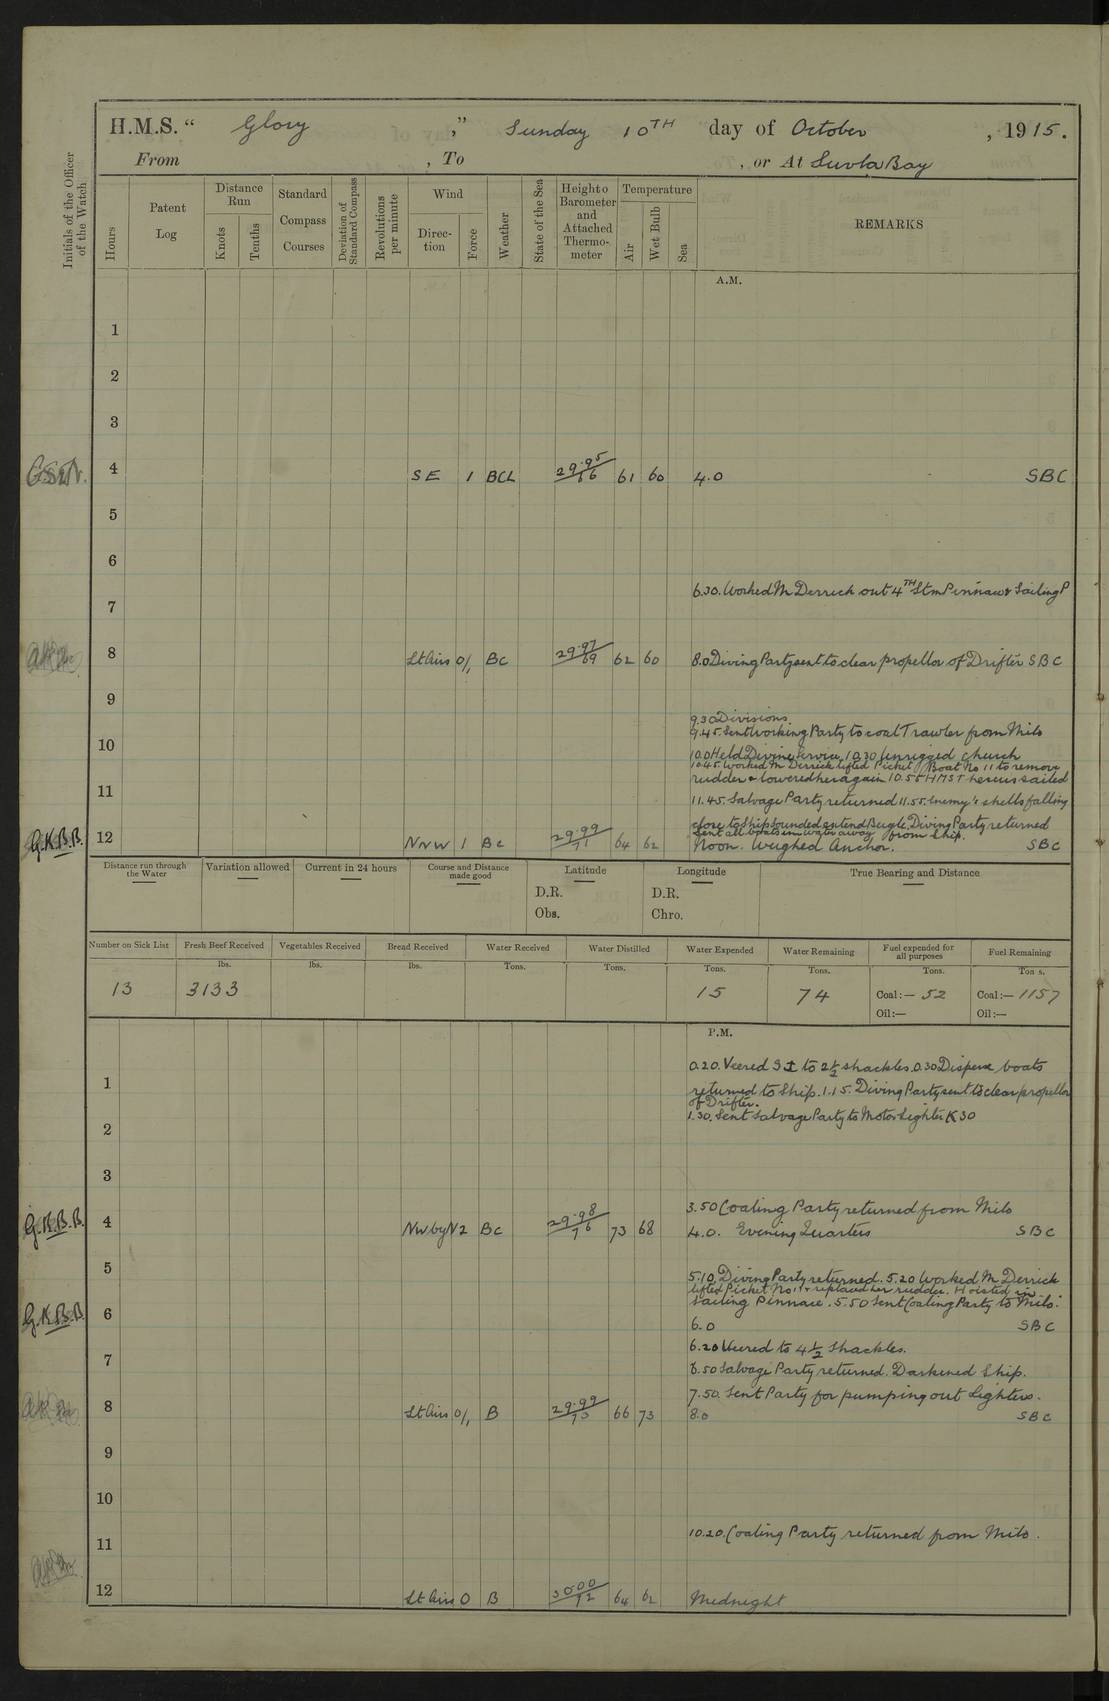 H.M.S. “ Glory ,” Sunday 10TH day of October , 1915.
From , To , or At Suvla Bay
Initials of the Officer of the Watch
Hours
Patent Log
Distance Run
Knots
Tenths
Standard Compass Courses
Deviation of Standard Compass
Revolutions per minute
Wind
Direc-tion
Force
Weather
State of the Sea
Height o Barometer and Attached Thermo-meter
Temperature
Air
Wet Bulb
Sea
REMARKS
A.M.
1
2
3
4 SE 1 BCL 29.95/66 61 60 4.0 SBC
5
6
6.30. Worked M Derrick out 4TH Stm Pinnace & Sailing P
7
8 Lt Airs 0/1 BC 29.97/69 62 60 8.0 Diving Party sent to clear propellor of Drifter SBC
9
9.30 Divisions.
9.45. Sent working Party to coal Trawler from Milo
10
10.0 Held Divine Service, 10.30 Unrigged church
10.45. Worked M Derrick lifted Picket Boat No 11 to remove
rudder & lowered her again 10.55 HMS T sailed
11
11.45. Salvage Party returned 11.55. Enemy's shells falling
close to Ship Sounded extend Bugle. Diving Party returned
Sent all boats in water away from Ship.
G.K.B.B. 12 NNW 1 BC 29.99/71 64 62 Noon. Weighed Anchor. SBC
Distance run through the Water
Variation allowed
Current in 24 hours
Course and Distance made good
Latitude
D.R.
Obs.
Longitude
D.R.
Chro.
True Bearing and Distance
Number on Sick List
Fresh Beef Received
Vegetables Received
Bread Received
Water Received
Water Distilled
Water Expended
Water Remaining
Fuel expended for all purposes
Fuel Remaining
lbs. lbs. lbs. Tons. Tons. Tons. Tons. Tons. Ton s.
13 3133 15 74 Coal:— 52 Coal:— 1157
Oil:— Oil:—
P.M.
0.20. Veered to 2½ shackles. 0.30 Disperse boats
1
returned to Ship. 1.15. Diving Party sent to clear propellor
of Drifter.
1.30. Sent Salvage Party to Motor Lighter K30
2
3
3.50 Coaling Party returned from Milo
G.K.B.B. 4 NW by N 2 BC 29.98/76 73 68 4.0. Evening Quarters SBC
5
5.10. Diving Party returned. 5.20 Worked M Derrick
lifted Picket No 11 & replaced her rudder. Hoisted in
Sailing Pinnace. 5.50 Sent Coaling Party to Milo.
G.K.B.B. 6 6.0 SBC
6.20 Veered to 4½ shackles.
7
6.50 Salvage Party returned. Darkened Ship.
7.50. Sent Party for pumping out Lighters.
8 Lt Airs 0/1 B 29.99/73 66 73 8.0 SBC
9
10
10.20. Coaling Party returned from Milo.
11
12 Lt Airs 0 B 30.00/72 64 62 Midnight